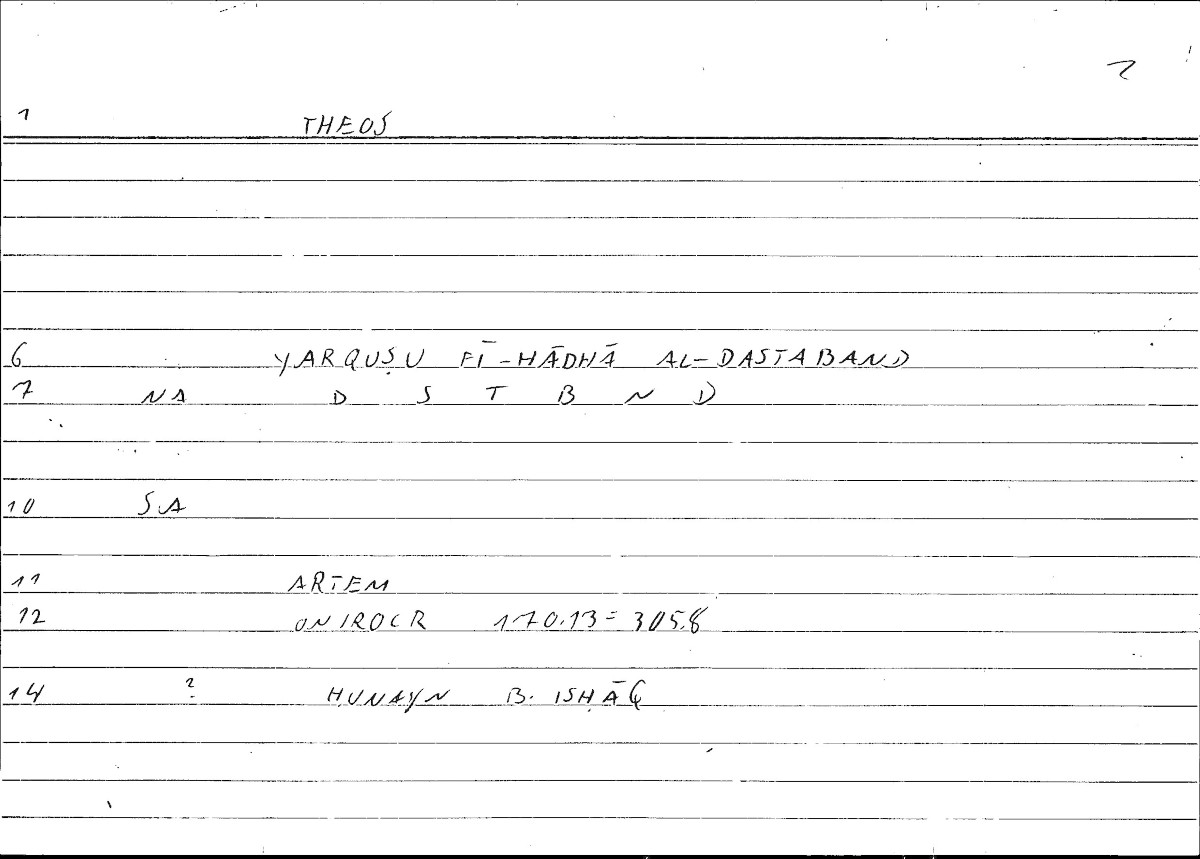 2
1 THEOS
6 YARQUṢU FĪ-HĀDHĀ AL-DASTABAND
7 NA D S T B N D
10 SA
11 ARTEM
12 ONIROCR 170.13=305.8
14 ? ḤUNAYN B. ISḤĀQ